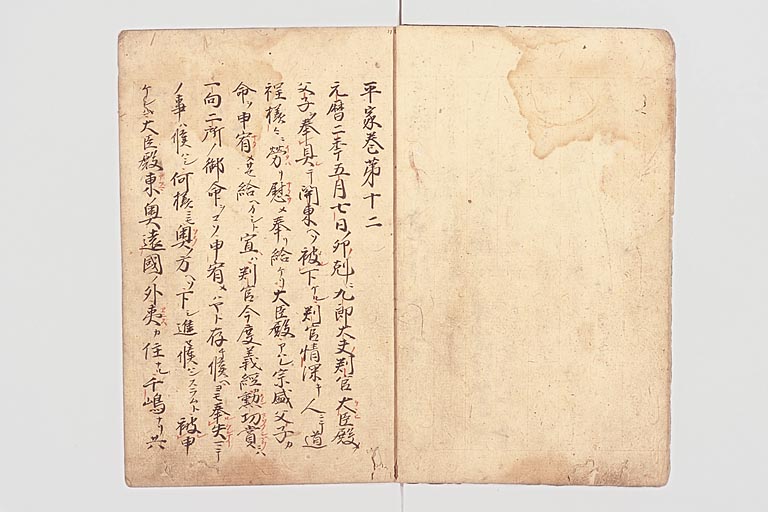 平家巻第十二
元暦二年五月七日ノ卯剋ニ九郎大夫判官大臣殿
父子ヲ奉具テ関東ヘソ被下ケル判官情深キ人ニテ道
程様々ニ労リ慰メ奉リ給ケリ大臣殿アハレ宗盛父子カ
命ヲ申宥メサセ給ヘカシト宣ハ判官今度義經勲功賞ニハ
一向二所ノ御命ヲコソ申宥メハヤト存候ヘヨモ奉失マテ
ノ事ハ候ハシ何様ニモ奥ノ方ヘソ下シ進セ候ハンスラムト被申
ケレハ大臣殿東ノ奥遠國ノ外夷カ住ナル千嶋ナリ共